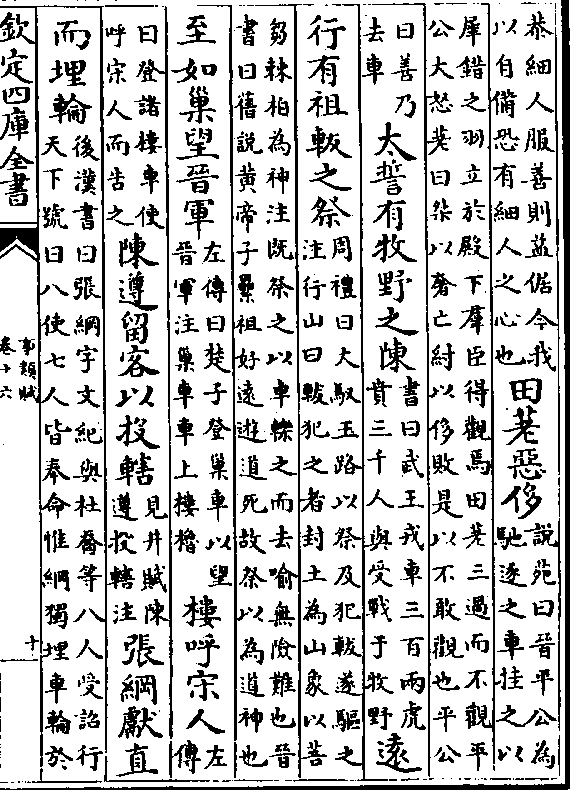 恭細人服善則益倨今我
以自備恐有細人之心也
田差惡侈
說苑曰晉平公為
馳逐之車挂之以
犀錯之羽立於殿下羣臣得觀焉田差三過而不觀平
公大怒差曰桀以奢亡紂以侈敗是以不敢觀也平公
曰善乃
去車
太誓有牧野之陳
書曰武王戎車三百兩虎
賁三千人與受戰于牧野
遠
行有祖軷之祭
周禮曰大馭玉路以祭及犯軷遂驅之
注行山曰軷犯之者封土為山象以菩
芻棘柏為神注既祭之以車轢之而去喻無險難也晉
書曰舊說黄帝子纍祖好遠遊道死故祭以為道神也
至如巢望晉軍
左傳曰楚子登巢車以望
晉軍注巢車車上樓櫓
樓呼宋人
左
傳
曰登諸樓車使
呼宋人而告之
陳遵留客以投轄
見井賦陳
遵投轄注
張綱獻直
而埋輪
後漢書曰張綱字文紀與杜裔等八人受詔行
天下號曰八使七人皆奉命惟綱獨埋車輪於
欽定四庫全書
事類賦
卷十六
十